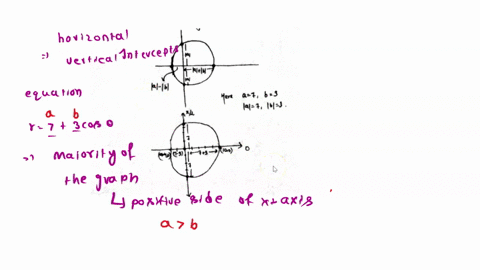 horizontal
vertical Intercepts
equation
a b
r = 7 + 3 cos θ
majority of
the graph
↳ positive side of x-axis
a > b
|a|-|b|
|a|+|b|
Here a=7, b=3
|a|=7, |b|=3.